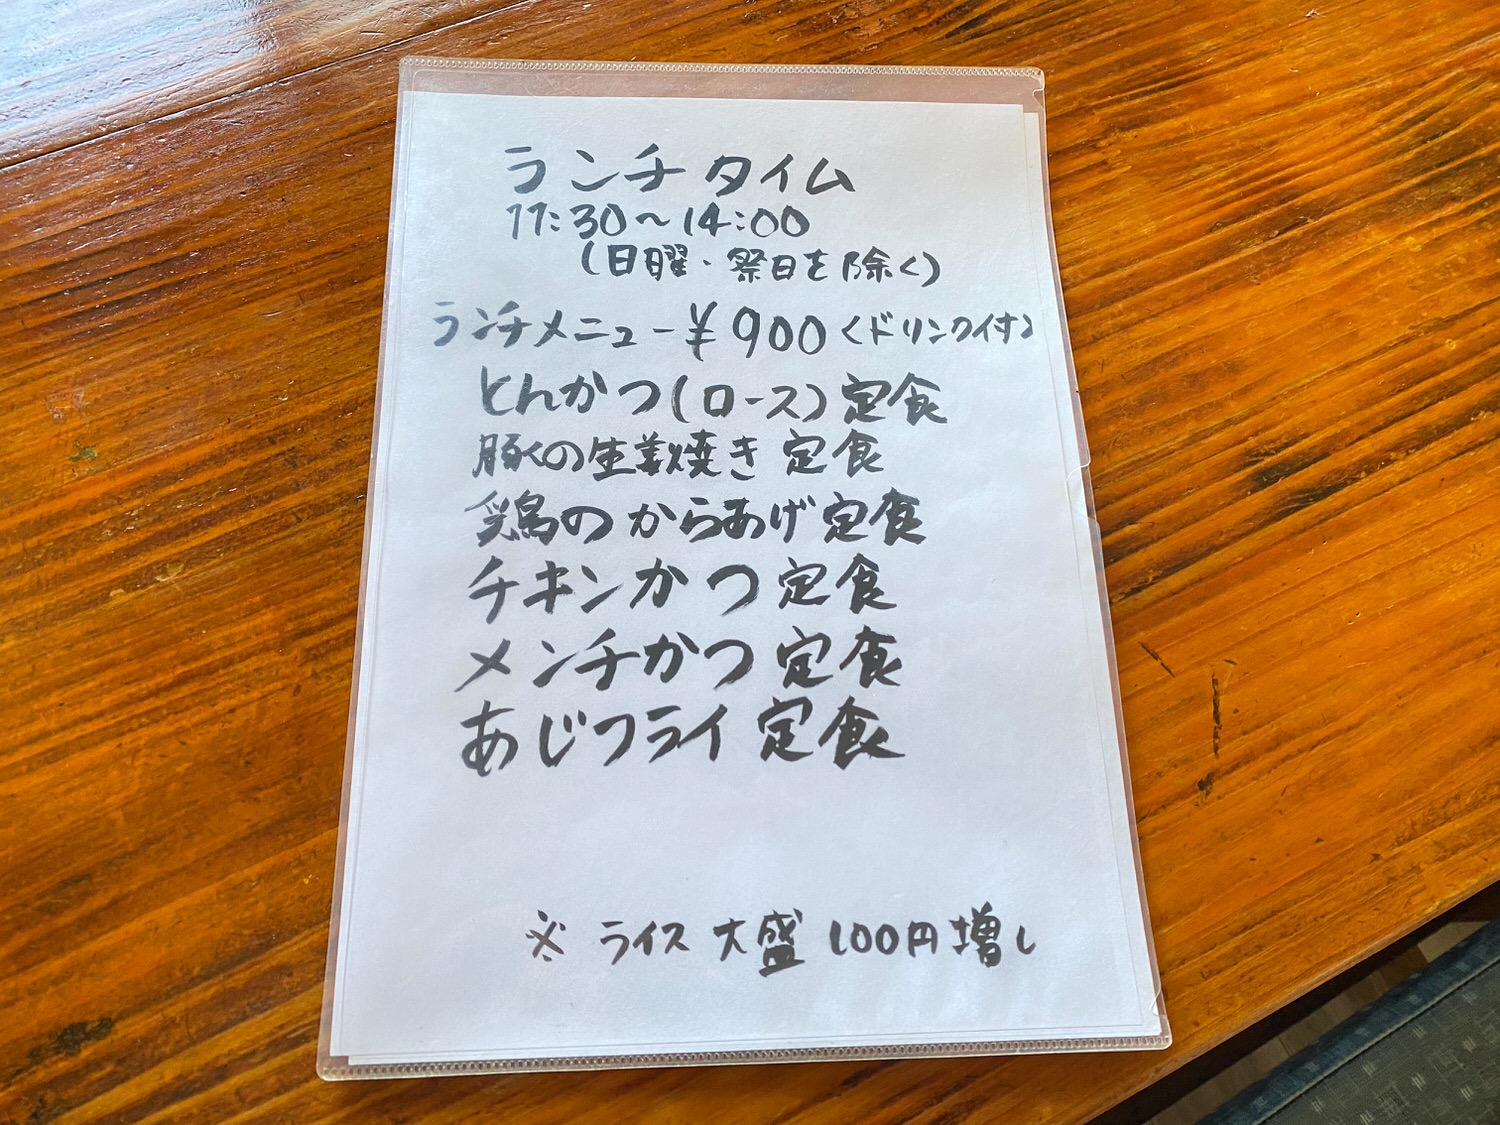 ランチタイム
11:30〜14:00
(日曜・祭日を除く)
ランチメニュー¥900<ドリンク付>
とんかつ(ロース)定食
豚の生姜焼き定食
鶏のからあげ定食
チキンかつ定食
メンチかつ定食
あじフライ定食
※ ライス大盛100円増し